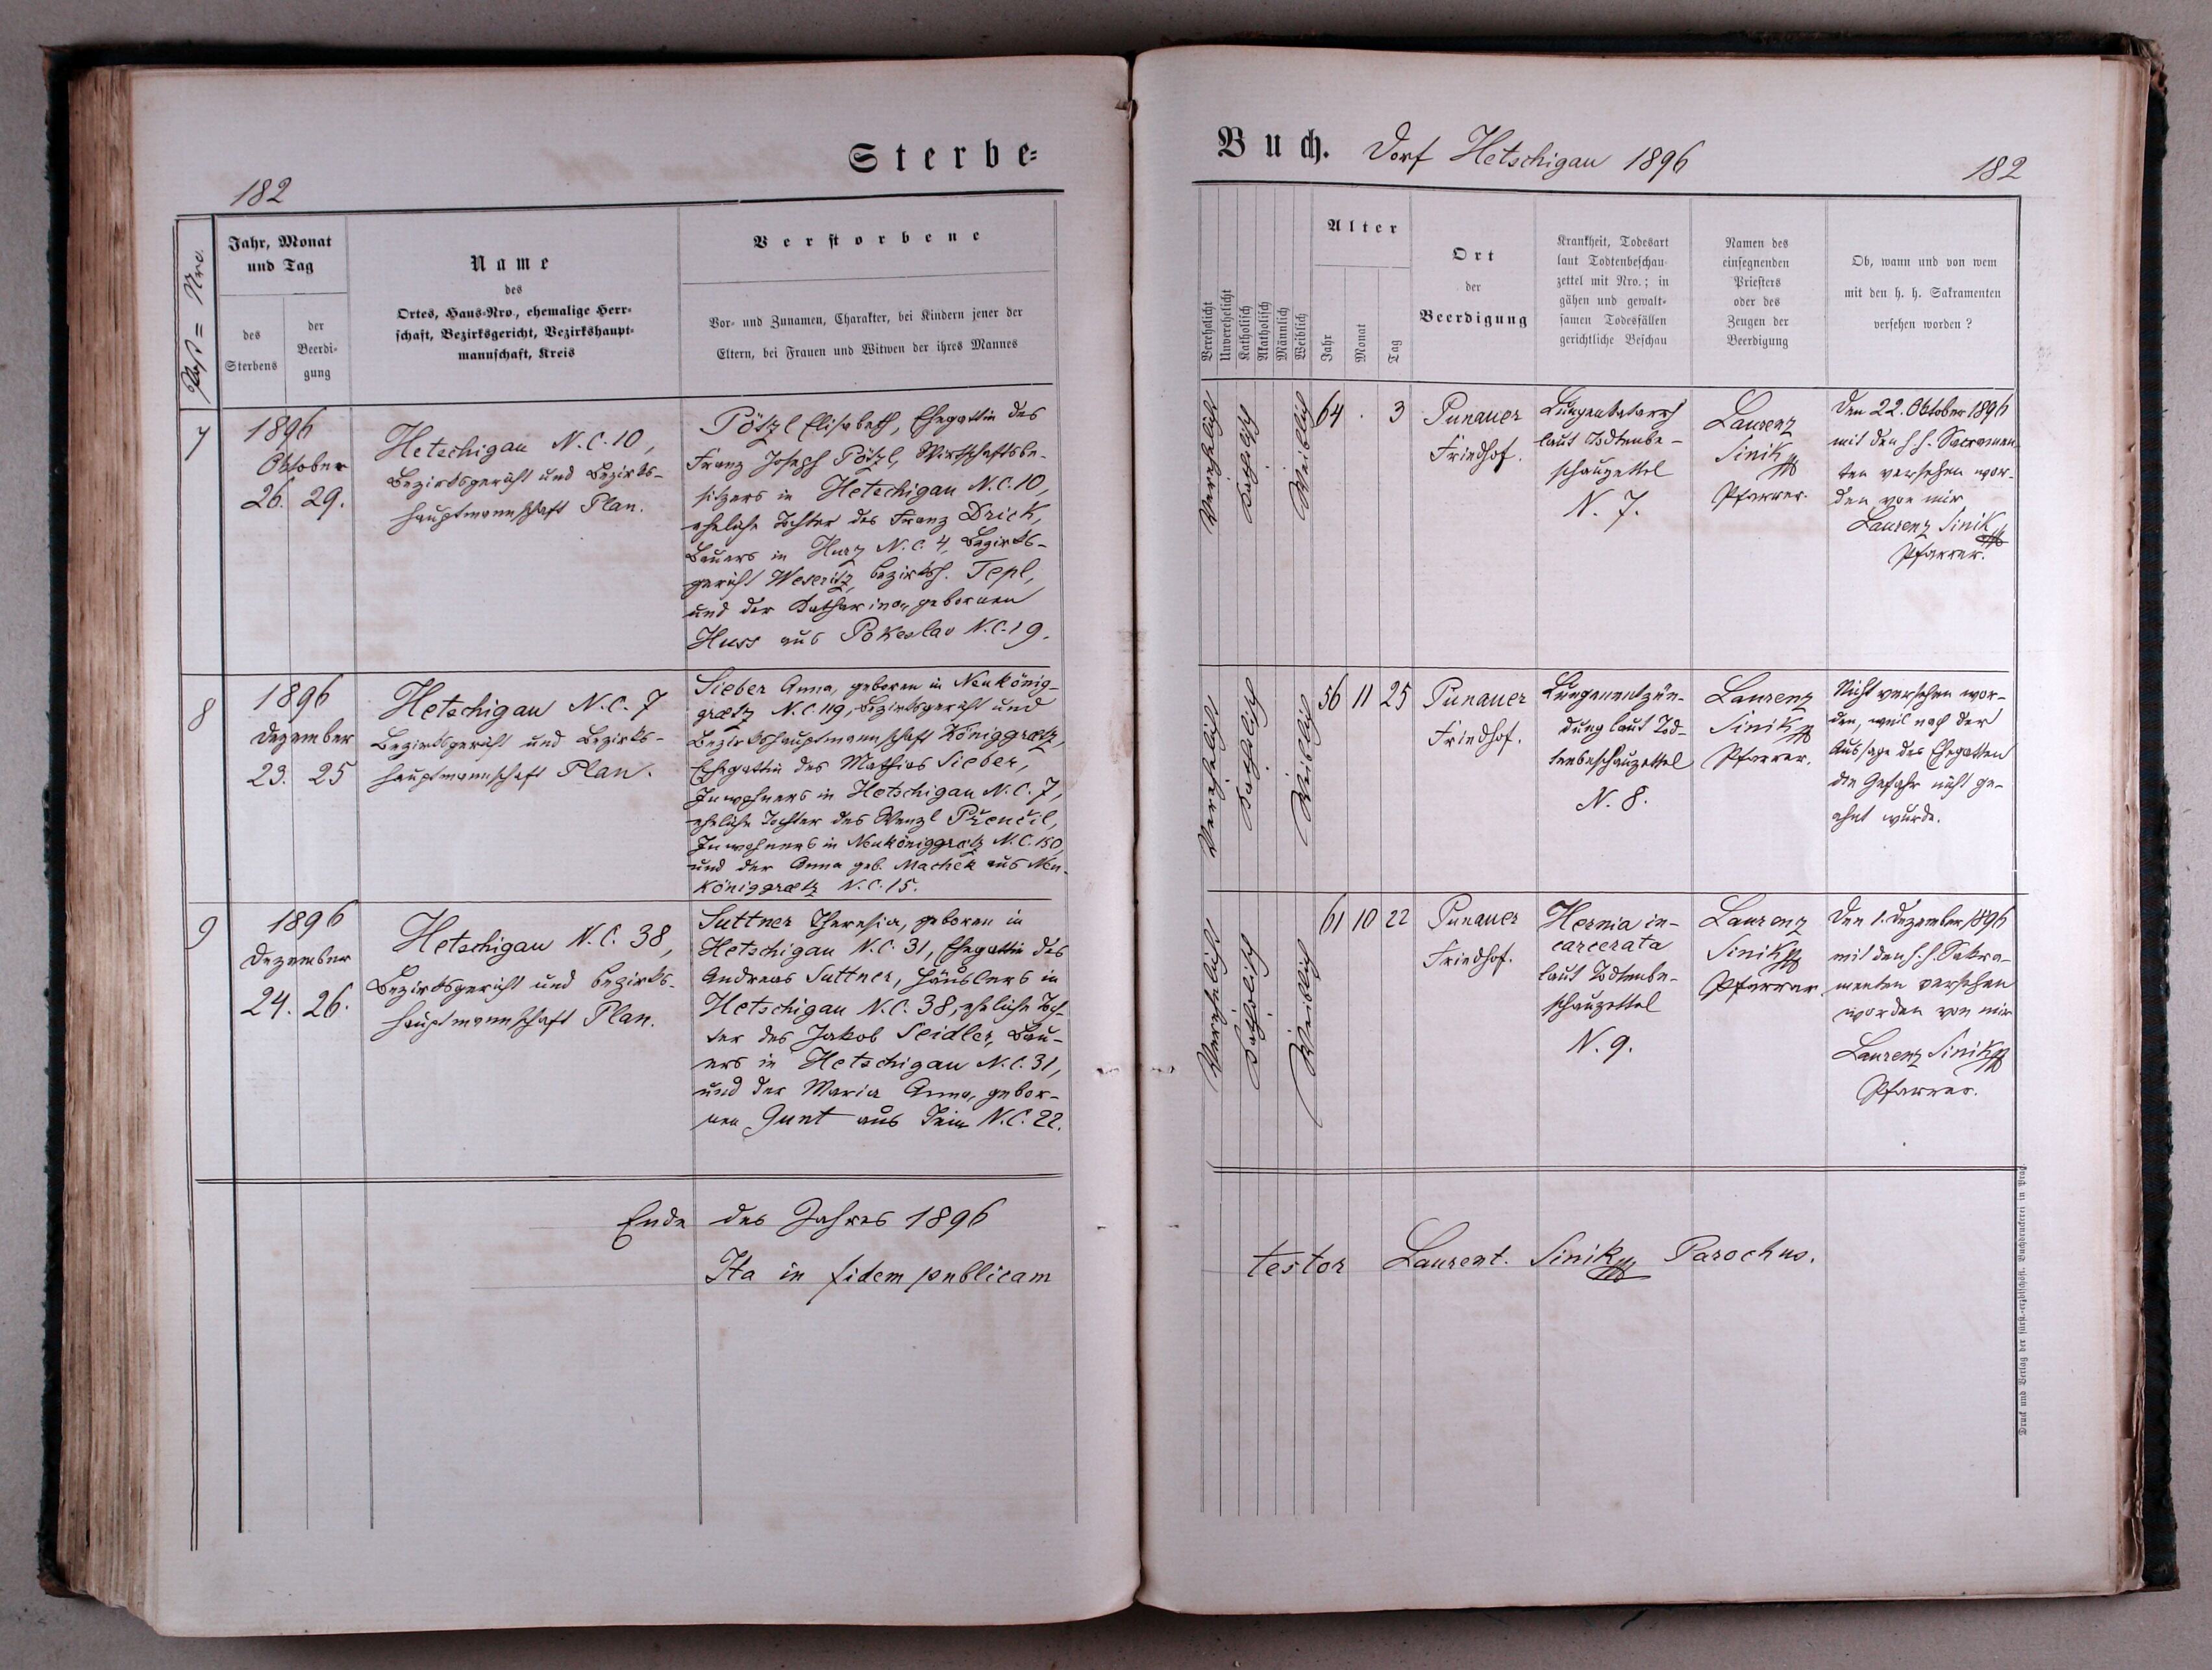 Sterbe-
182
Post = Nro.
Jahr, Monat
und Tag
des
Sterbens
der
Beerdi-
gung
Name
des
Ortes, Haus-Nro., ehemalige Herr-
schaft, Bezirksgericht, Bezirkshaupt-
mannschaft, Kreis
Verstorbene
Vor- und Zunamen, Charakter, bei Kindern jener der
Eltern, bei Frauen und Witwen der ihres Mannes
7
1896
Oktober
26. 29.
Hetschigau N.C. 10,
Bezirksgericht und Bezirks-
hauptmannschaft Plan.
Pötzl Elisabeth, Ehegattin des
Franz Joseph Pötzl, Wirtschaftsbe-
sitzers in Hetschigau N.C. 10,
eheliche Tochter des Franz Drick,
Bauers in Hurz N.C. 4, Bezirks-
gericht Weseritz, Bezirksh. Tepl,
und der Katharina, gebornen
Huss aus Pokeslav N.C. 19.
8
1896
Dezember
23. 25
Hetschigau N.C. 7
Bezirksgericht und Bezirks-
hauptmannschaft Plan.
Sieber Anna, geboren in Neukönig-
grætz N.C. 119, Bezirksgericht und
Bezirkshauptmannschaft Königgrætz,
Ehegattin des Mathias Sieber,
Inwohners in Hetschigau N.C. 7,
eheliche Tochter des Wenzl
Inwohners in Neuköniggrætz N.C. 150,
und der Anna geb. Machek aus Neu-
königgrætz N.C. 15.
9
1896
Dezember
24. 26.
Hetschigau N.C. 38,
Bezirksgericht und Bezirks-
hauptmannschaft Plan.
Suttner Theresia, geboren in
Hetschigau N.C. 31, Ehegattin des
Andreas Suttner, Häuslers in
Hetschigau N.C. 38, eheliche Toch-
ter des Jakob Seidler, Bau-
ers in Hetschigau N.C. 31,
und der Maria Anna, gebor-
nen Gunt aus N.C. 22.
Ende des Jahres 1896
Ita in fidem publicam
Buch. Dorf Hetschigau 1896
182
Verehelicht
Unverehelicht
Katholisch
Akatholisch
Männlich
Weiblich
Alter
Jahr
Monat
Tag
Ort
der
Beerdigung
Krankheit, Todesart
laut Todtenbeschau-
zettel mit Nro.; in
gähen und gewalt-
samen Todesfällen
gerichtliche Beschau
Namen des
einsegnenden
Priesters
oder des
Zeugen der
Beerdigung
Ob, wann und von wem
mit den h. h. Sakramenten
versehen worden?
Verehelicht
Katholisch
Weiblich
64 . 3
Punauer
Friedhof.
Lungenkatarrh
laut Todtenbe-
schauzettel
N. 7.
Laurenz
Sinik
Pfarrer.
Den 22. Oktober 1896
mit den h. h. Sacramen-
ten versehen wor-
den von mir
Laurenz Sinik
Pfarrer.
Verehelicht
Katholisch
Weiblich
56 11 25
Punauer
Friedhof.
Lungenentzün-
dung laut Tod-
tenbeschauzettel
N. 8.
Laurenz
Sinik
Pfarrer.
Nicht versehen wor-
den, weil nach der
Aussage des Ehegatten
die Gefahr nicht ge-
ahnt wurde.
Verehelicht
Katholisch
Weiblich
61 10 22
Punauer
Friedhof.
Hernia in-
carcerata
laut Todtenbe-
schauzettel
N. 9.
Laurenz
Sinik
Pfarrer
Den 1. Dezember 1896
mit den h. h. Sakra-
menten versehen
worden von mir
Laurenz Sinik
Pfarrer.
testor Laurent. Sinik Parochus.
Druck und Verlag der fürst-erzbischöfl. Buchdruckerei in Prag.